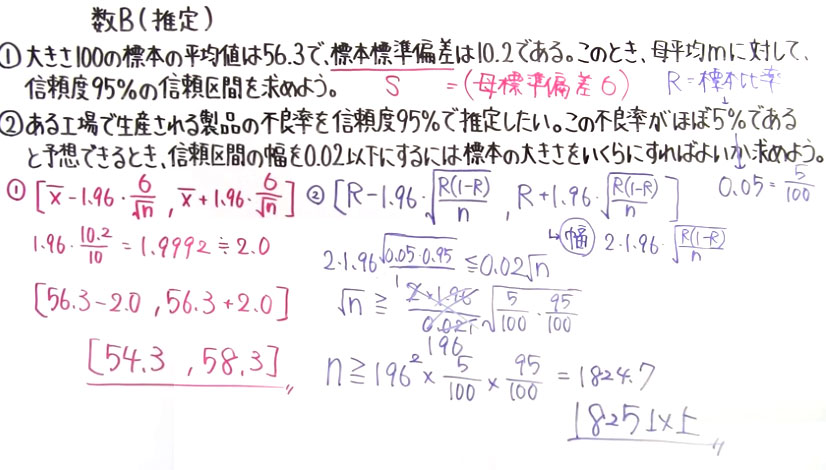 数B(推定)
①大きさ100の標本の平均値は56.3で、標本標準偏差は10.2である。このとき、母平均mに対して、
信頼度95%の信頼区間を求めよう。 S =(母標準偏差6) R=標本比率
②ある工場で生産される製品の不良率を信頼度95%で推定したい。この不良率がほぼ5%である
と予想できるとき、信頼区間の幅を0.02以下にするには標本の大きさをいくらにすればよいか求めよう。
① [x̄-1.96・6/√n , x̄+1.96・6/√n] ② [R-1.96・√(R(1-R)/n) , R+1.96・√(R(1-R)/n)] 0.05=5/100
1.96・10.2/10=1.9992≒2.0
↳幅 2・1.96・√(R(1-R)/n)
2・1.96√(0.05・0.95)≦0.02√n
[56.3-2.0 , 56.3+2.0]
√n≧2×1.96/0.02√(5/100・95/100)
196
[54.3 , 58.3]
n≧196²×5/100×95/100=1824.7
1825以上